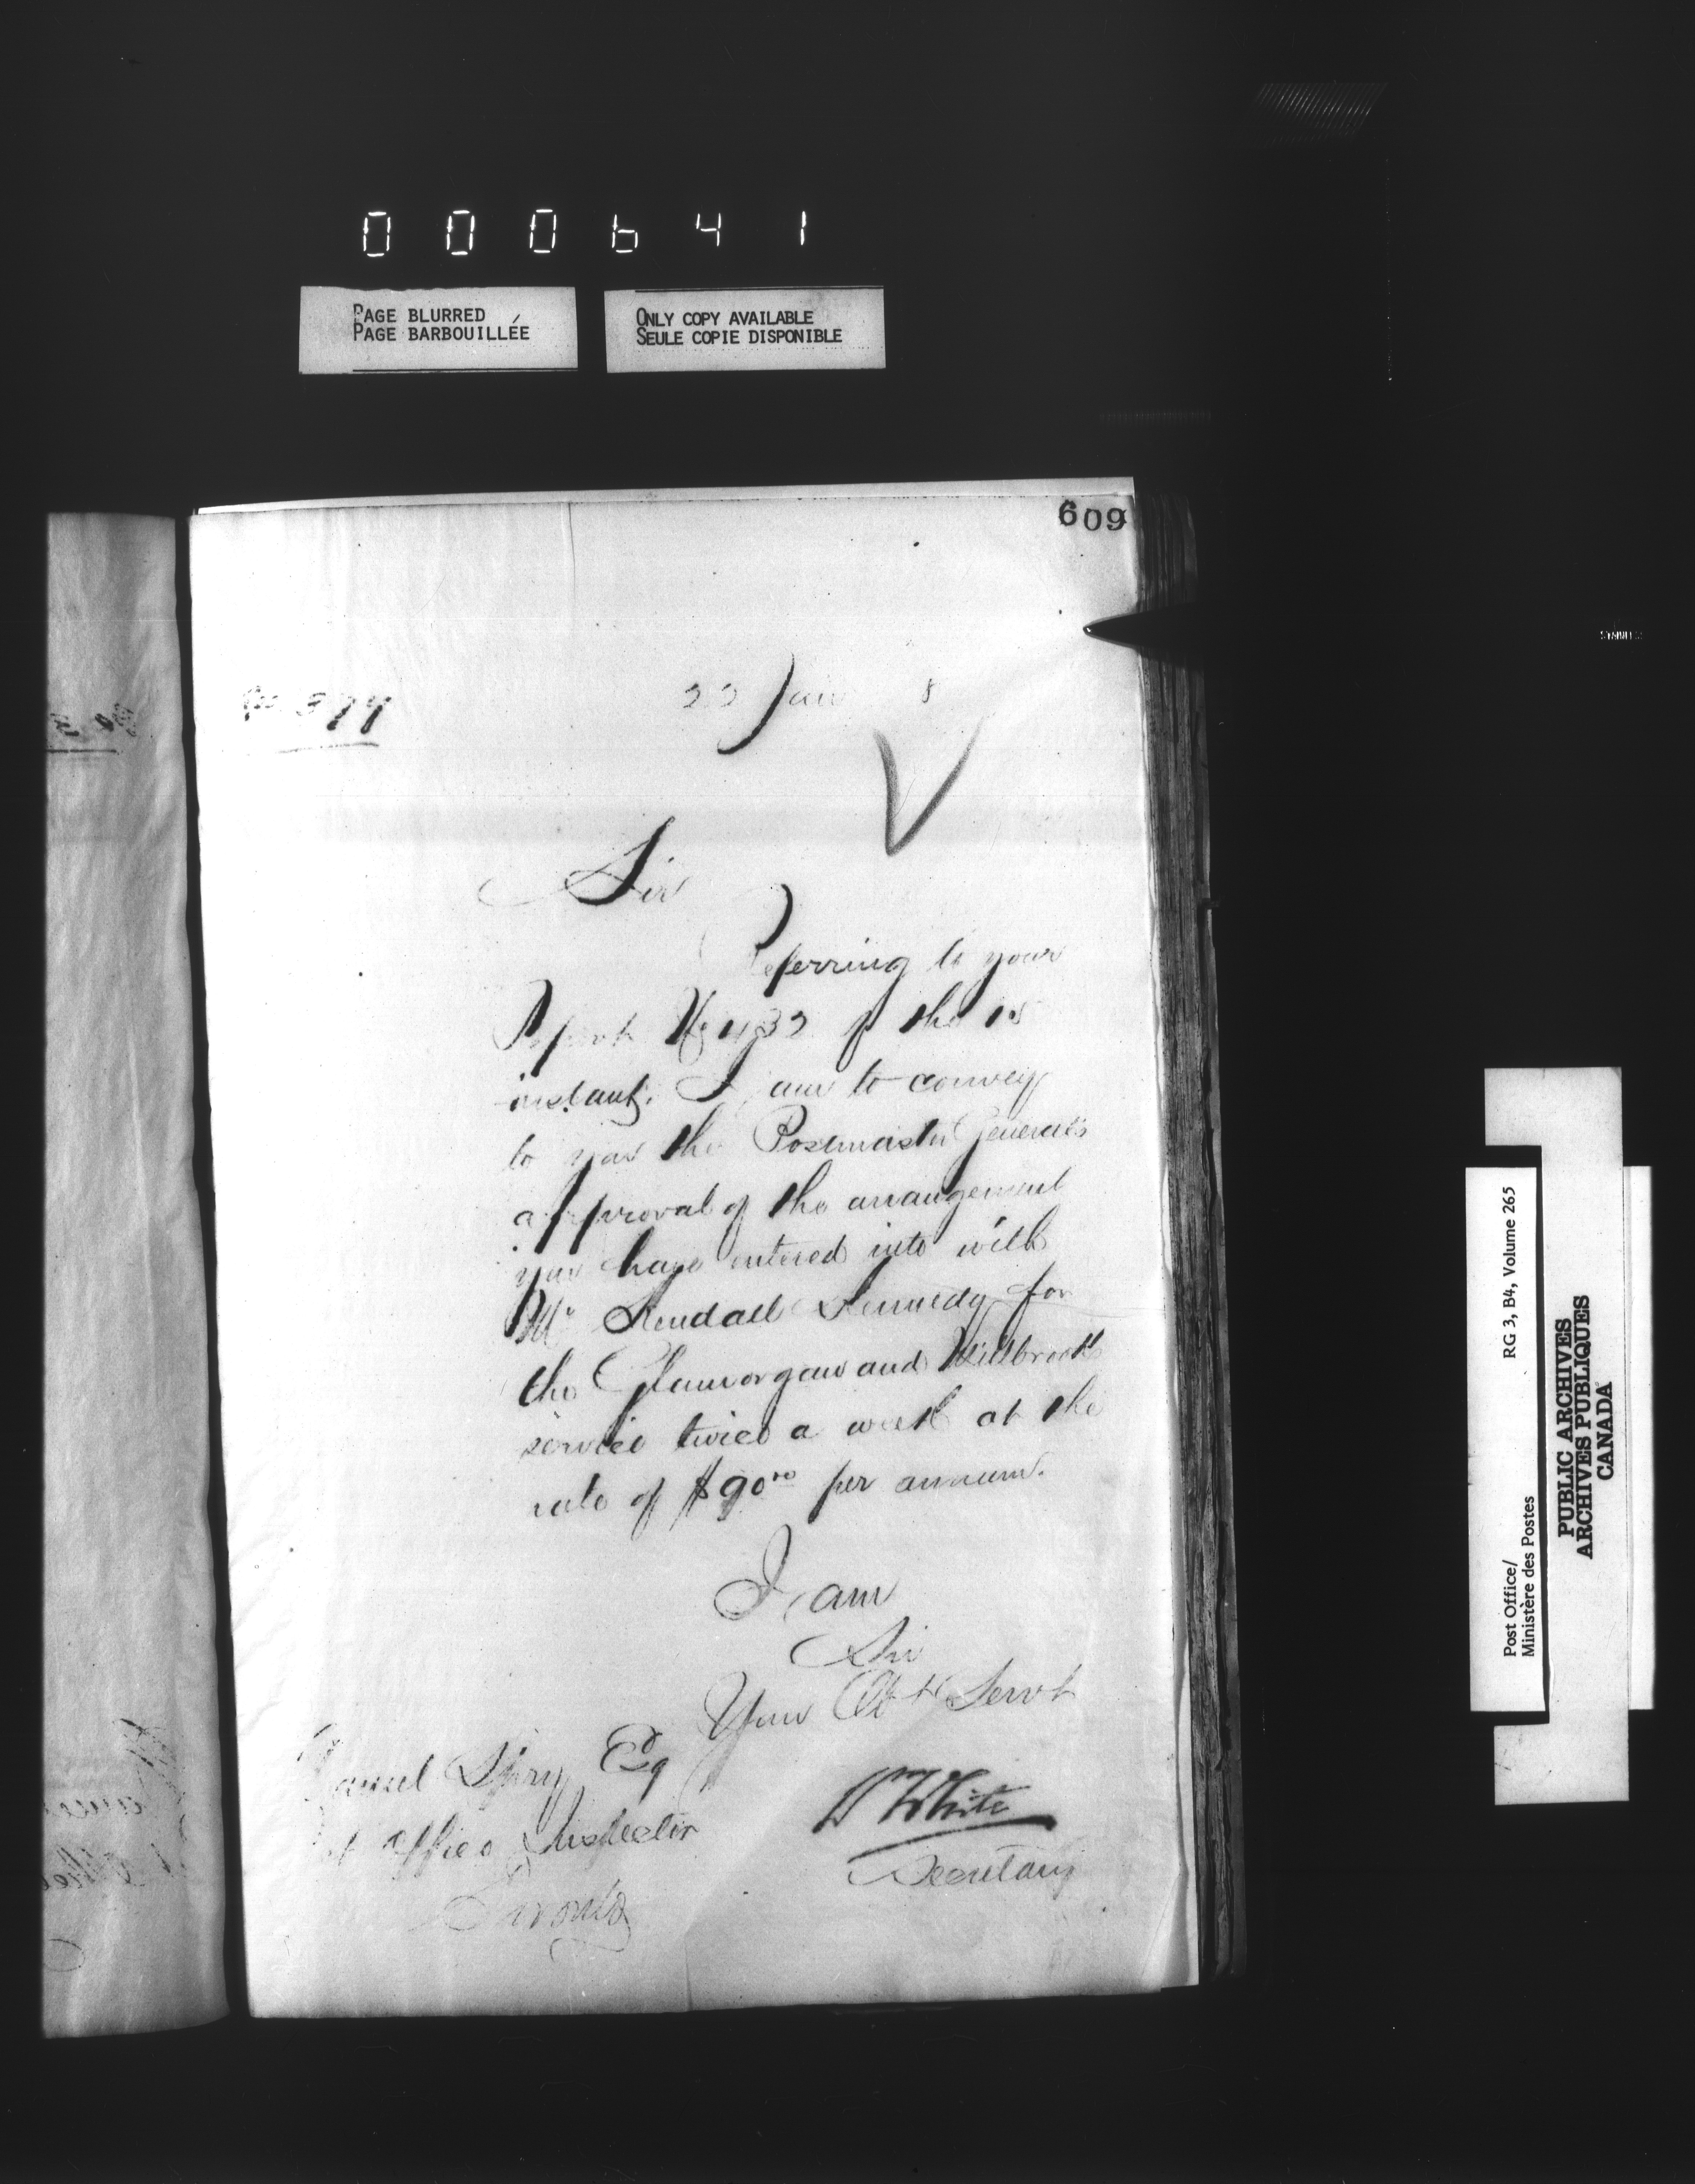 000641
PAGE BLURRED
PAGE BARBOUILLÉE
ONLY COPY AVAILABLE
SEULE COPIE DISPONIBLE
609
22 Jan 8
Sir
Referring to your
Report No 432 of the
instant. I am to convey
to you the Postmaster General's
approval of the arrangement
you have entered into with
Mr Kendall Kennedy for
the Glamorgan and
service twice a week at the
rate of $90 00 per annum.
I am
Sir
Your Obt Servt
Daniel Spry Esq
Office Inspector
Toronto
W White
Secretary
Post Office/ RG 3, B4, Volume 265
Ministère des Postes
PUBLIC ARCHIVES
ARCHIVES PUBLIQUES
CANADA